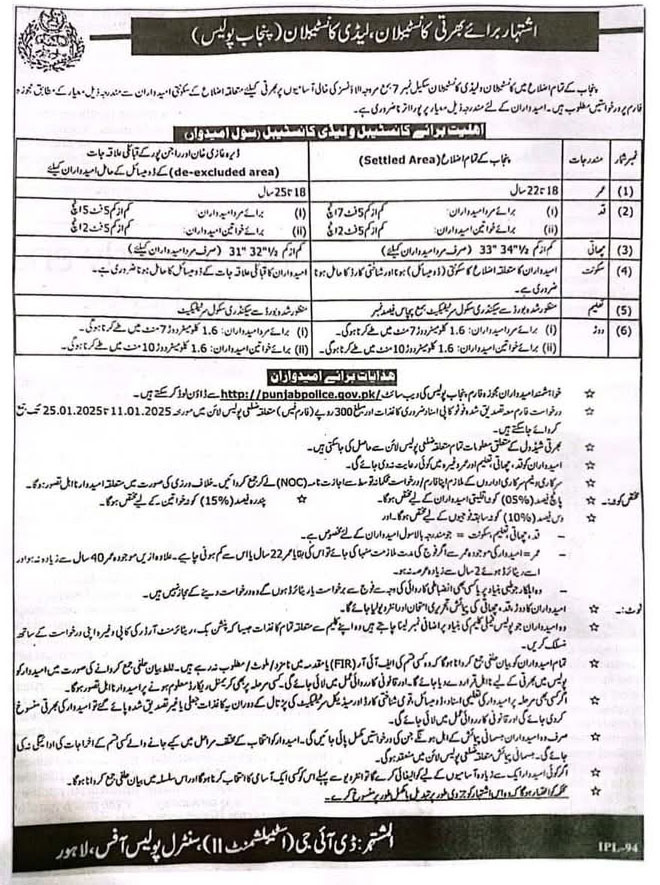 اشتہار برائے بھرتی کانسٹیبلان، لیڈی کانسٹیبلان (پنجاب پولیس)
پنجاب کے تمام اضلاع میں کانسٹیبلان و لیڈی کانسٹیبلان سکیل نمبر 7 بمع مروجہ الاؤنسز کی خالی آسامیوں پر بھرتی کیلئے متعلقہ اضلاع کے سکونتی امیدواران سے مندرجہ ذیل معیار کے مطابق مجوزہ
فارم پر درخواستیں مطلوب ہیں۔ امیدواران کے لئے مندرجہ ذیل معیار پر پورا اترنا ضروری ہے۔
اہلیت برائے کانسٹیبل و لیڈی کانسٹیبل (سول امیدوار)
نمبر شمار مندرجات پنجاب کے تمام اضلاع (Settled Area) ڈیرہ غازی خان اور راجن پور کے قبائلی علاقہ جات
(de-excluded area) کے ڈومیسائل کے حامل امیدواران کیلئے
(1) عمر 18 تا 22 سال 18 تا 25 سال
(2) قد (i) برائے مرد امیدواران: کم از کم 5 فٹ 7 انچ (i) برائے مرد امیدواران: کم از کم 5 فٹ 5 انچ
(ii) برائے خواتین امیدواران: کم از کم 5 فٹ 2 انچ (ii) برائے خواتین امیدواران: کم از کم 5 فٹ 2 انچ
(3) چھاتی کم از کم 33" 34½" (صرف مرد امیدواران کیلئے) کم از کم 31" 32½" (صرف مرد امیدواران کیلئے)
(4) سکونت امیدواران کا متعلقہ اضلاع کا سکونتی (ڈومیسائل) ہونا اور شناختی کارڈ کا حامل ہونا ضروری ہے۔ امیدواران کا قبائلی علاقہ جات کے ڈومیسائل کا حامل ہونا ضروری ہے۔
(5) تعلیم منظور شدہ بورڈ سے سیکنڈری سکول سرٹیفکیٹ بمع پچاس فیصد نمبر منظور شدہ بورڈ سے سیکنڈری سکول سرٹیفکیٹ
(6) دوڑ (i) برائے مرد امیدواران: 1.6 کلومیٹر دوڑ 7 منٹ میں طے کرنا ہوگی۔ (i) برائے مرد امیدواران: 1.6 کلومیٹر دوڑ 7 منٹ میں طے کرنا ہوگی۔
(ii) برائے خواتین امیدواران: 1.6 کلومیٹر دوڑ 10 منٹ میں طے کرنا ہوگی۔ (ii) برائے خواتین امیدواران: 1.6 کلومیٹر دوڑ 10 منٹ میں طے کرنا ہوگی۔
ہدایات برائے امیدواران
☆ خواہشمند امیدواران مجوزہ فارم پنجاب پولیس کی ویب سائٹ http://punjabpolice.gov.pk/ سے ڈاؤن لوڈ کر سکتے ہیں۔
☆ درخواست فارم معہ تصدیق شدہ فوٹو کاپی اسناد ضروری کاغذات اور مبلغ 300 روپے (فارم فیس) متعلقہ ضلعی پولیس لائن میں مورخہ 11.01.2025 تا 25.01.2025 تک جمع
کروائے جا سکتے ہیں۔
☆ بھرتی شیڈول کے متعلق معلومات تمام متعلقہ ضلعی پولیس لائن سے حاصل کی جا سکتی ہیں۔
☆ امیدواران کو قد، چھاتی، تعلیم اور عمر وغیرہ میں کوئی رعایت نہ دی جائے گی۔
☆ سرکاری و نیم سرکاری اداروں کے ملازم اپنا فارم/درخواست محکمانہ توسط سے اجازت نامہ (NOC) لے کر جمع کروائیں۔ خلاف ورزی کی صورت میں متعلقہ امیدوار نااہل تصور ہوگا۔
مختص کوٹہ:۔ ☆ پانچ فیصد (05%) کوٹہ اقلیتی امیدواران کے لیے مختص ہوگا۔ ☆ پندرہ فیصد (15%) کوٹہ خواتین کے لیے مختص ہوگا۔
☆ دس فیصد (10%) کوٹہ سابقہ فوجیوں کے لیے مختص ہوگا۔ اور
- قد، چھاتی، تعلیم، سکونت = جو مندرجہ بالا سول امیدواران کے لئے مخصوص ہے۔
- عمر = امیدوار کی موجودہ عمر سے اگر فوج کی مدت ملازمت منہا کی جائے تو اس کی بقایا عمر 22 سال یا اس سے کم ہونی چاہیے۔ علاوہ ازیں موجودہ عمر 40 سال سے زیادہ نہ ہو اور
اسے ریٹائرڈ ہوئے 2 سال سے زیادہ عرصہ نہ ہو۔
- وہ اہلکار جو طبی بنیاد پر یا کسی بھی انضباطی کاروائی کی وجہ سے فوج سے برخواست یا ریٹائرڈ ہوں گے وہ درخواست دینے کے مجاز نہیں ہیں۔
نوٹ:۔ ☆ امیدواران کا دوڑ، قد، چھاتی کی پیمائش، تحریری امتحان اور انٹرویو لیا جائے گا۔
☆ وہ امیدواران جو پولیس فیملی کلیم کی بنیاد پر اضافی نمبر لینا چاہتے ہیں وہ اپنے کلیم سے متعلقہ تمام کاغذات جیسا کہ پنشن بک، ریٹائرمنٹ آرڈر کی کاپی وغیرہ اپنی درخواست کے ساتھ
منسلک کریں۔
☆ تمام امیدواران کو بیان حلفی جمع کروانا ہوگا کہ وہ کسی قسم کی ایف آئی آر (FIR) یا مقدمہ میں نامزد/ملوث/مطلوب نہ رہے ہیں۔ غلط بیان حلفی جمع کروانے کی صورت میں امیدوار کو
پولیس میں بھرتی کے لیے نااہل قرار دے دیا جائے گا۔ اور قانونی کاروائی عمل میں لائی جائے گی۔ کسی مرحلہ پر بھی کریمنل ریکارڈ معلوم ہونے پر امیدوار نااہل تصور ہوگا۔
☆ اگر کسی بھی مرحلہ پر امیدوار کی تعلیمی اسناد، ڈومیسائل، قومی شناختی کارڈ اور میڈیکل سرٹیفکیٹ کی پڑتال کے دوران یہ کاغذات جعلی یا غیر تصدیق شدہ پائے گئے تو امیدوار کی بھرتی منسوخ
کر دی جائے گی اور قانونی کاروائی عمل میں لائی جائے گی۔
☆ صرف وہ امیدواران جسمانی پیمائش کے اہل ہونگے جن کی درخواستیں مکمل پائی جائیں گی۔ امیدوار کو انتخاب کے مختلف مراحل میں کیے جانے والے کسی قسم کے اخراجات کی ادائیگی نہ کی
جائے گی۔ جسمانی پیمائش متعلقہ ضلعی پولیس لائن میں منعقد ہوگی۔
☆ اگر کوئی امیدوار ایک سے زیادہ آسامیوں کے لیے کوالیفائی کرے گا تو انٹرویو سے پہلے اس کو کسی ایک آسامی کا انتخاب کرنا ہوگا اور اس سلسلہ میں بیان حلفی جمع کروانا ہوگا۔
☆ محکمہ کو اختیار ہوگا کہ وہ اس اشتہار کو جزوی طور پر تبدیل یا مکمل طور پر منسوخ کرے۔
المشتہر: ڈی آئی جی (اسٹیبلشمنٹ II)، سنٹرل پولیس آفس، لاہور
IPL-94